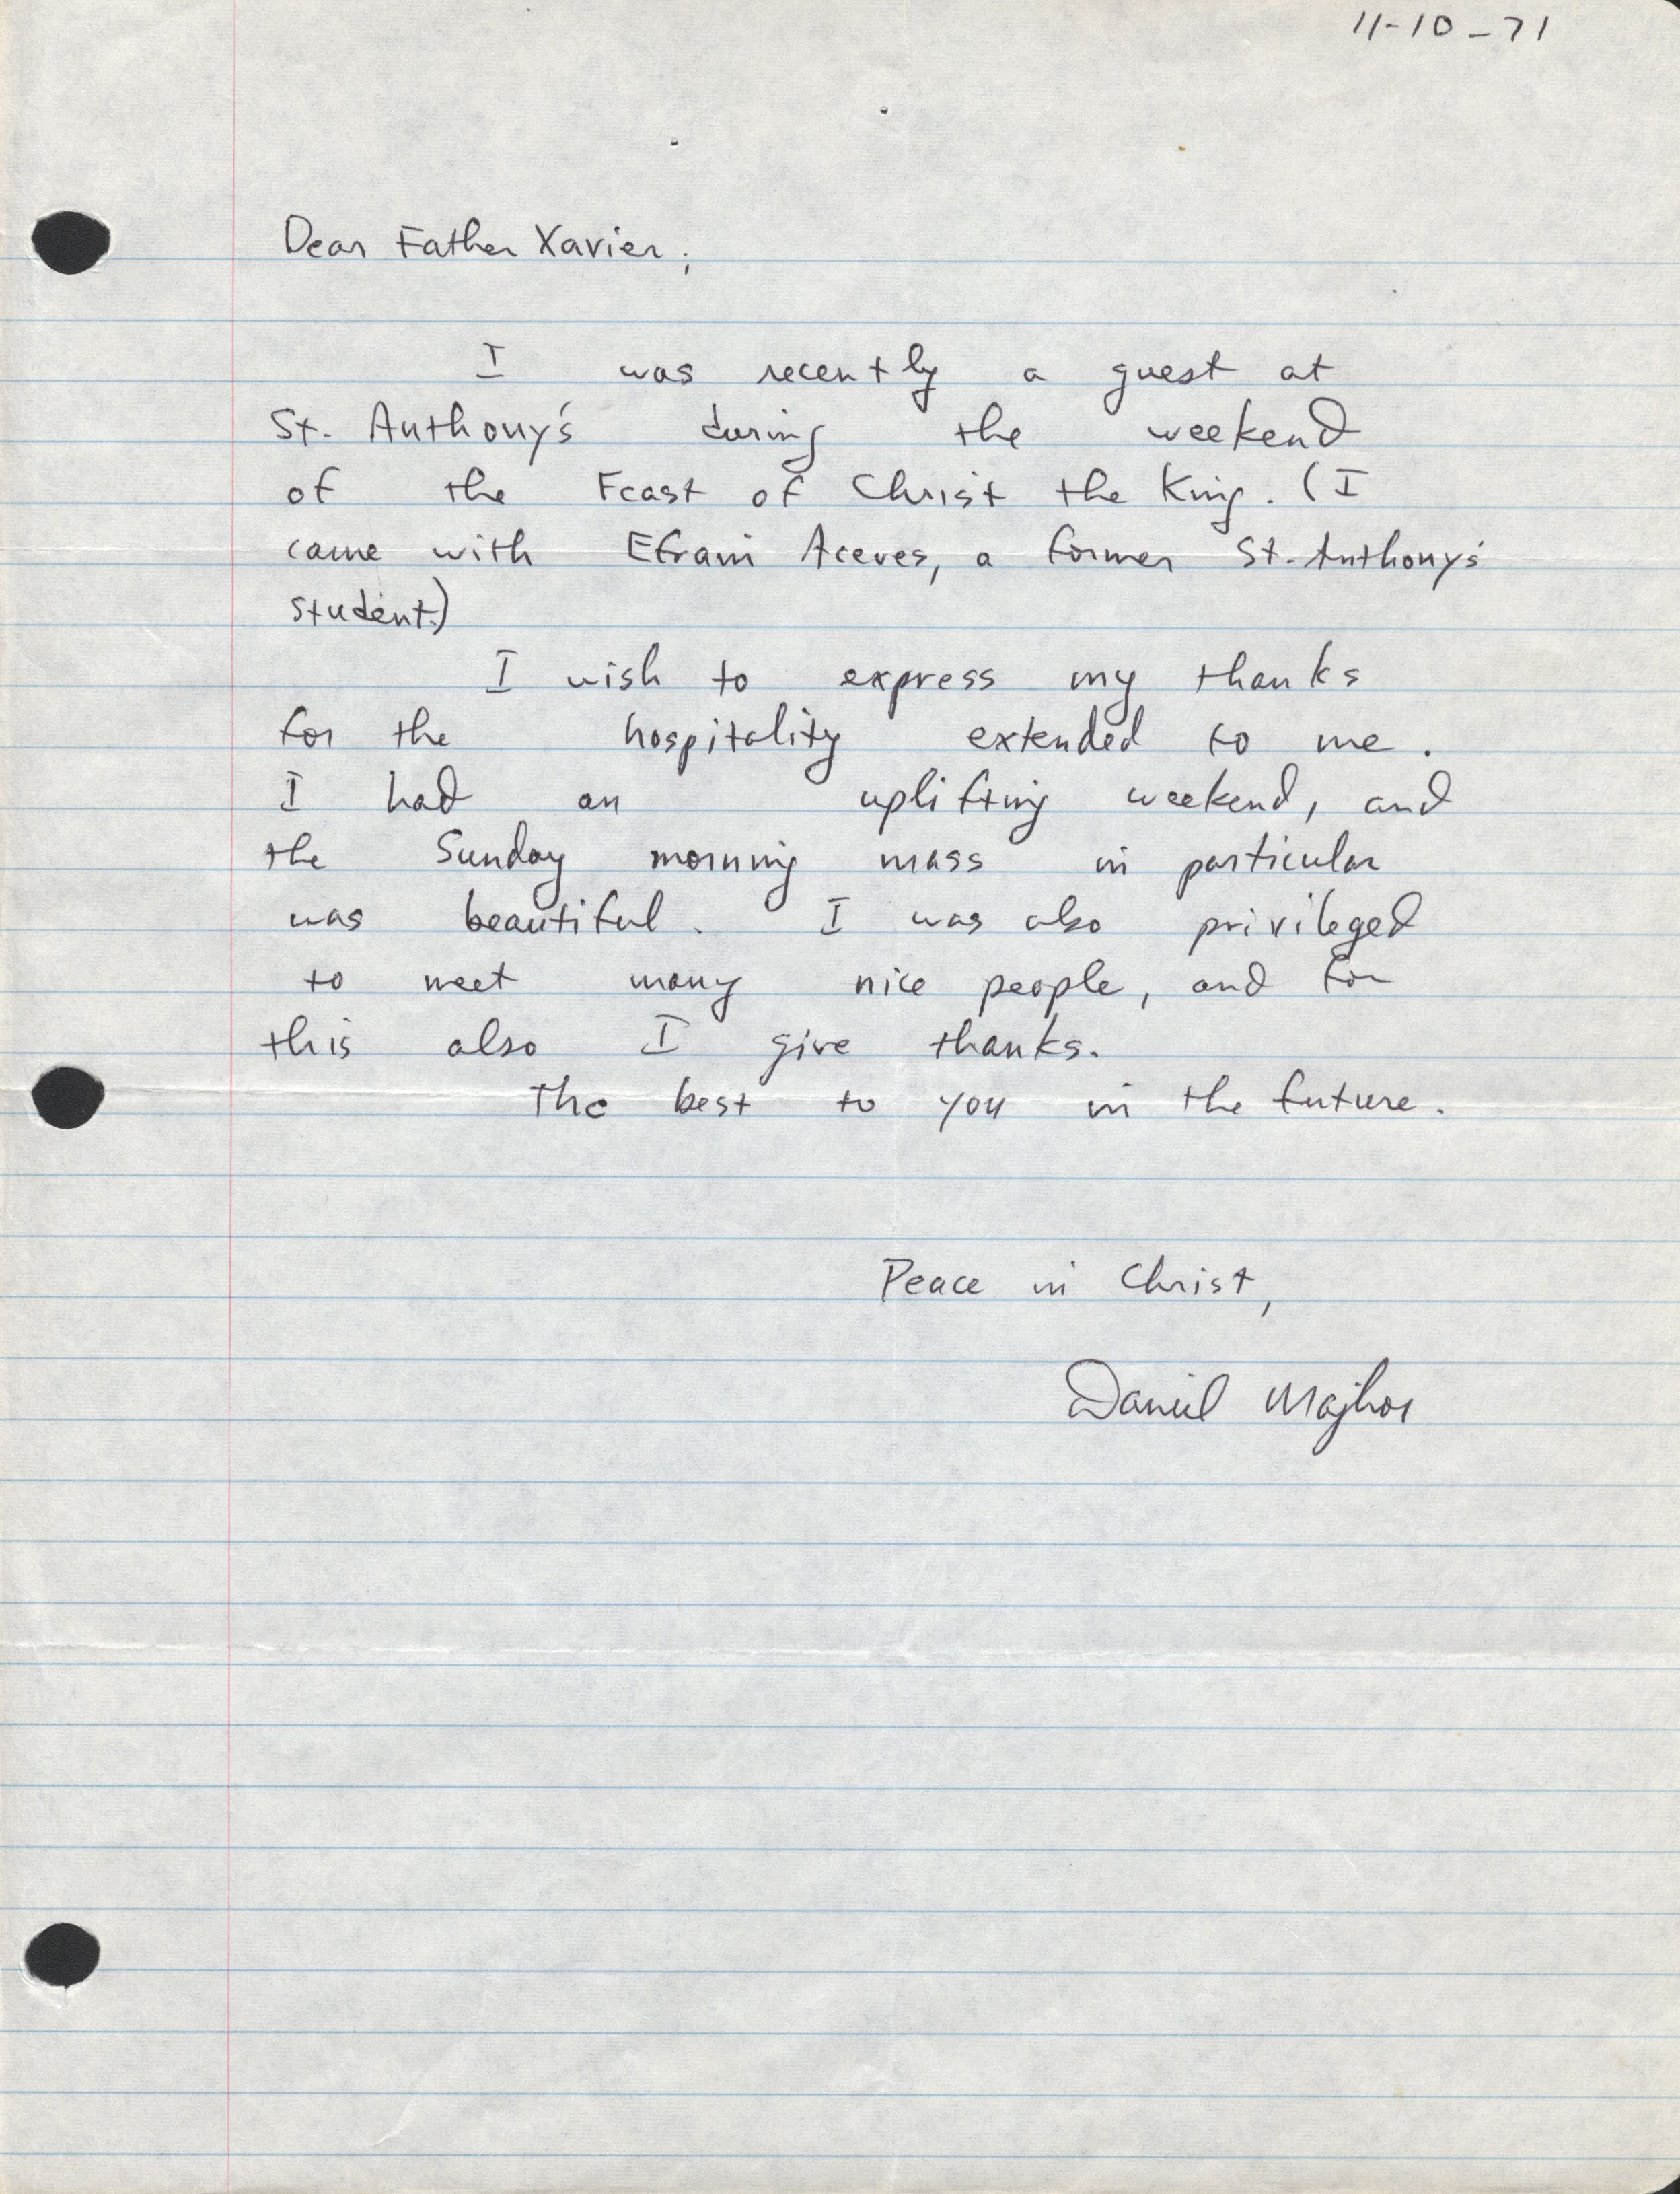 11-10-71
Dear Father Xavier,
I was recently a guest at
St. Anthony's during the weekend
of the Feast of Christ the King. (I
came with Efrain Aceves, a former St. Anthony's
student.)
I wish to express my thanks
for the hospitality extended to me.
I had an uplifting weekend, and
the Sunday morning mass in particular
was beautiful. I was also privileged
to meet many nice people, and for
this also I give thanks.
The best to you in the future.
Peace in Christ,
Daniel